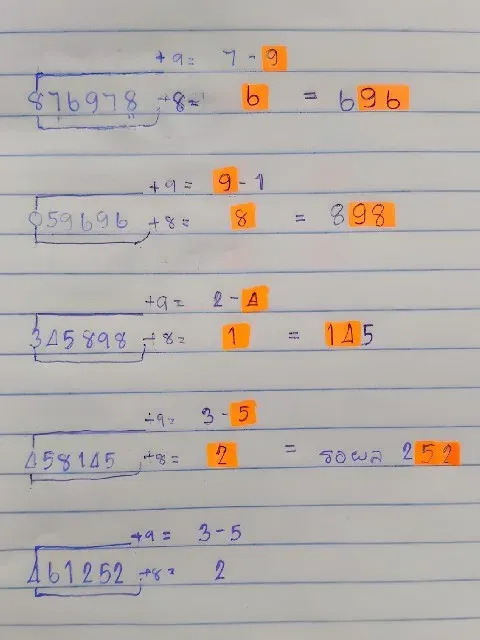 +9 = 7 - 9
876978 +8 = 6 = 696
+9 = 9 - 1
059696 +8 = 8 = 898
+9 = 2 - 4
345898 +8 = 1 = 145
+9 = 3 - 5
458145 +8 = 2 = รอผล 252
+9 = 3 - 5
461252 +8 = 2